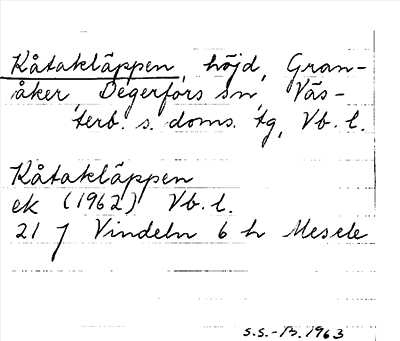 Kåtakläppen, höjd, Gran-
åker, Degerfors sn, Väs-
terb. s. doms. tg, Vb. l.
Kåtakläppen
ek (1962) Vb. l.
21 J Vindeln 6 h Mesele
S.S.-B. 1963